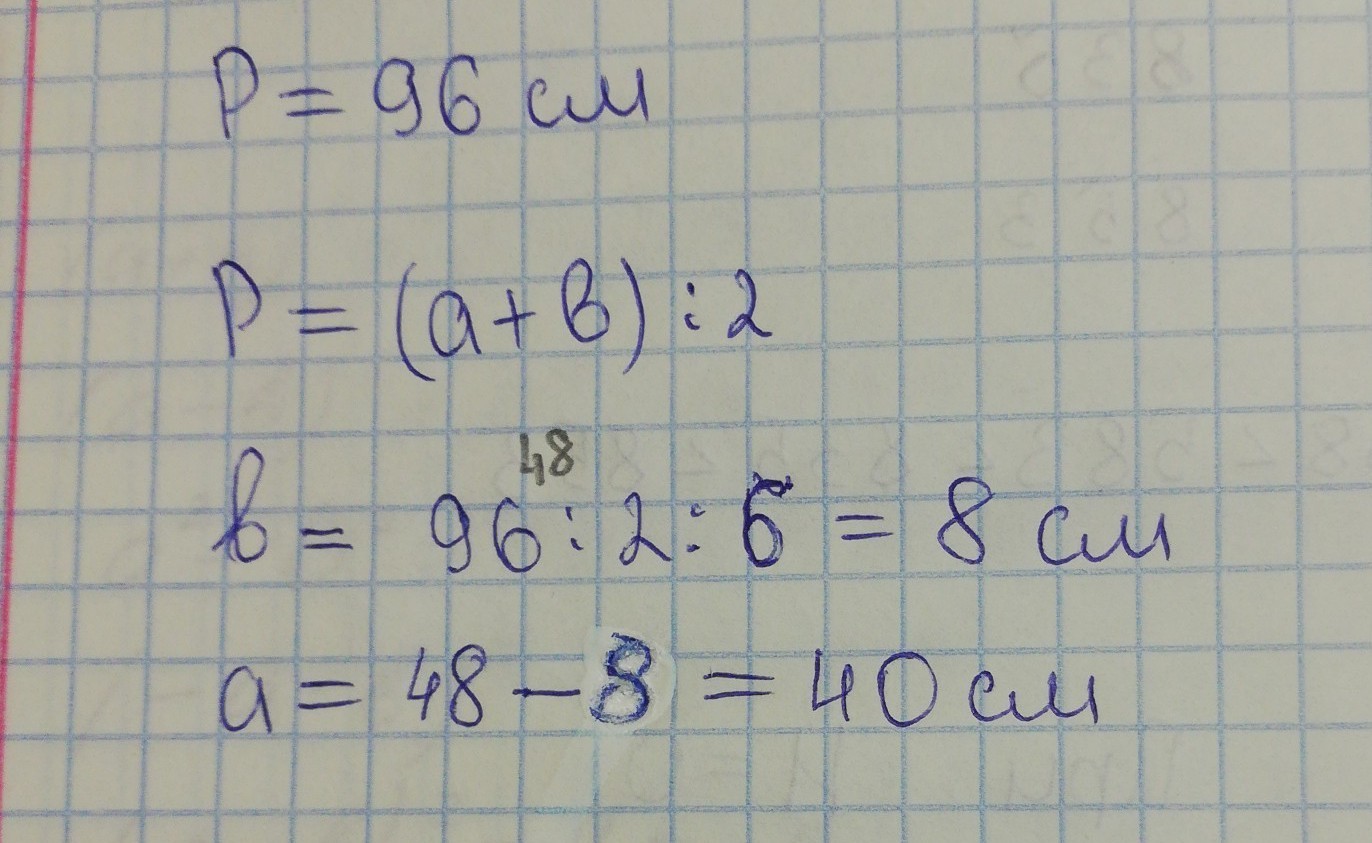 P = 96 см
P = (а + в) : 2
48
в = 96 : 2 : 6 = 8 см
а = 48 – 8 = 40 см